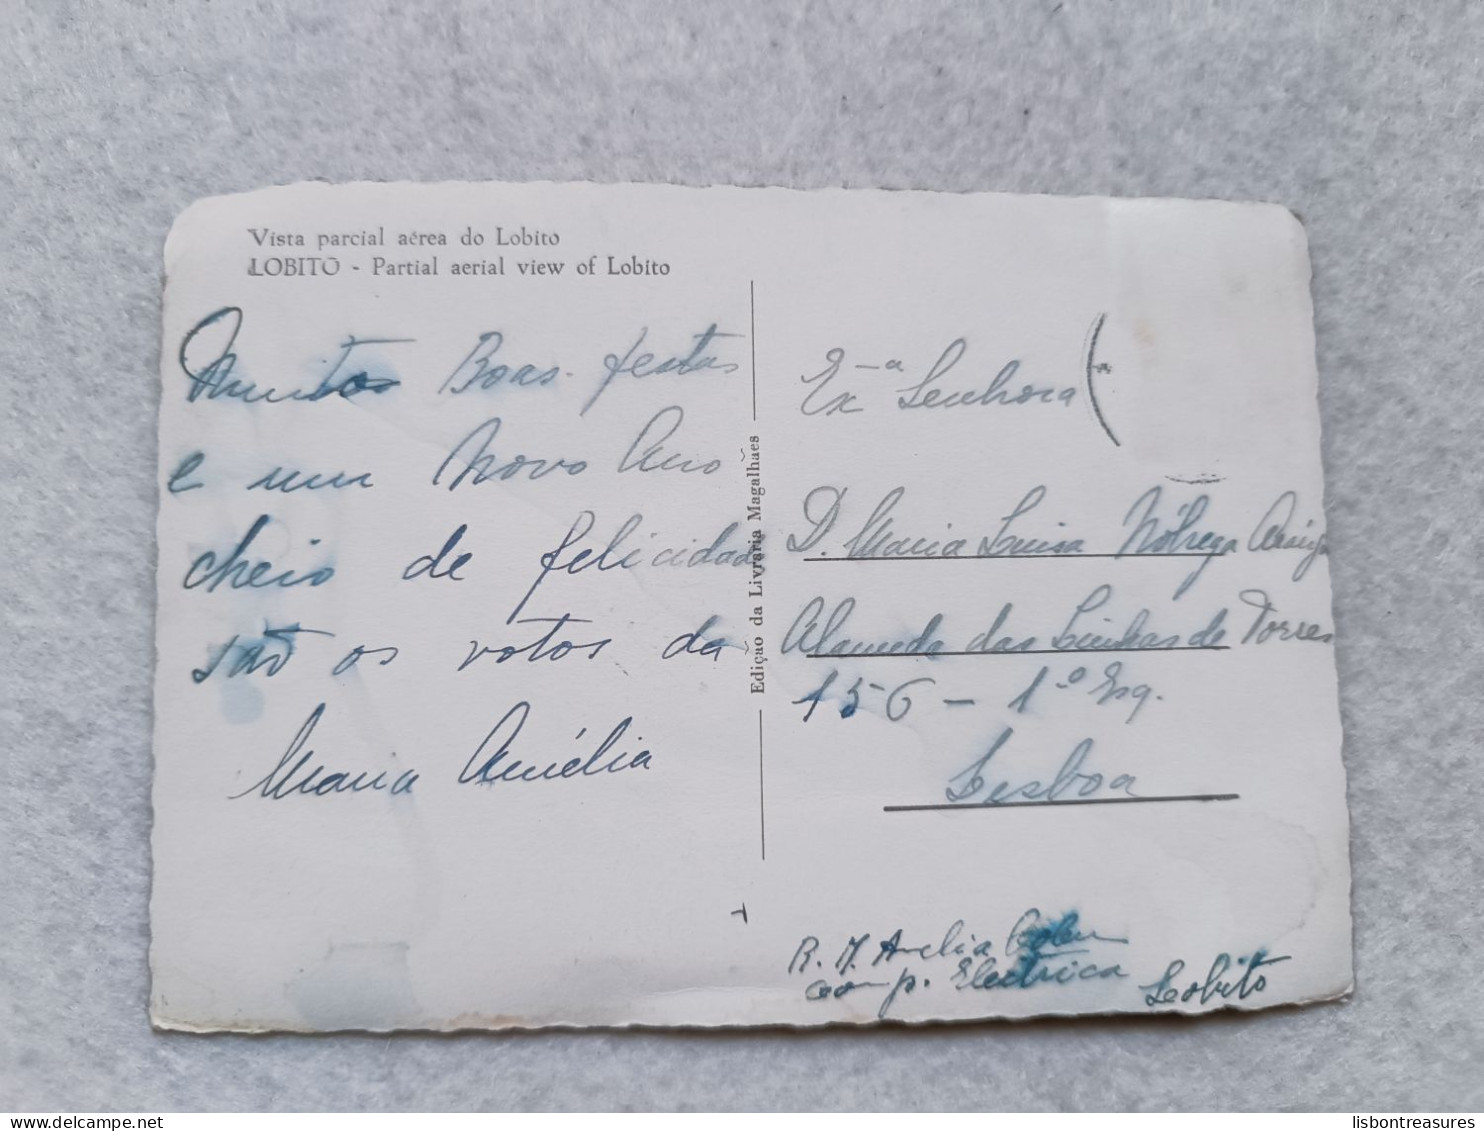 Vista parcial aérea do Lobito
LOBITO - Partial aerial view of Lobito
Muitas Boas-festas
e um Novo Ano
cheio de felicidade
são os votos da
Maria Amélia
Edição da Livraria Magalhães
Exª Senhora
D. Maria Luisa Nóbrega Araújo
Alameda das Linhas de Torres
156 - 1º Esq.
Lisboa
R. M. Amélia
Comp. Electrica Lobito
delcampe.net
lisbontreasures